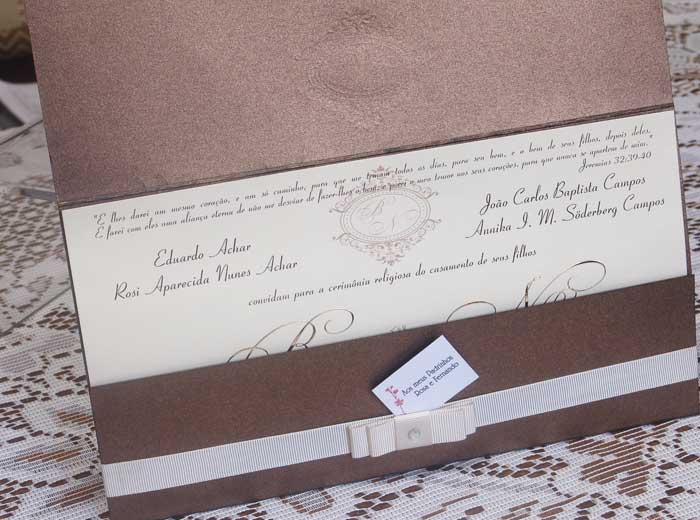 "E lhes darei um mesmo coração, e um só caminho, para que me temam todos os dias, para seu bem, e o bem de seus filhos, depois deles.
E farei com eles uma aliança eterna de não me desviar de fazer-lhes o bem; e porei o meu temor nos seus corações, para que nunca se apartem de mim."
Jeremias 32:39-40
Eduardo Achar
Rosi Aparecida Nunes Achar
João Carlos Baptista Campos
Annika I. M. Söderberg Campos
convidam para a cerimônia religiosa do casamento de seus filhos
Aos meus Padrinhos
Rosa e Fernando